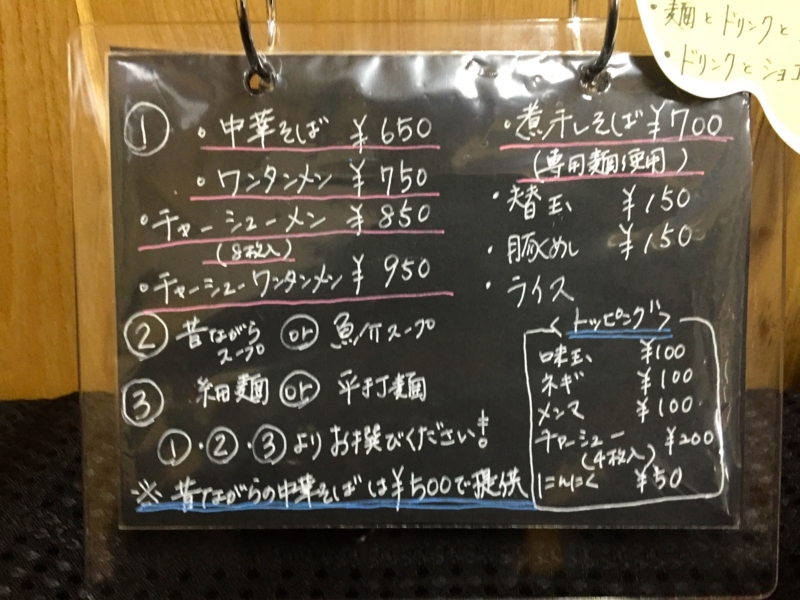 ・麺とドリンクと
・ドリンクとショコ
①
・中華そば ¥650
・ワンタンメン ¥750
・チャーシューメン ¥850
(8枚入)
・チャーシューワンタンメン ¥950
② 昔ながらスープ or 魚介スープ
③ 細麺 or 平打麺
①・②・③よりお選びください!
※昔ながらの中華そばは¥500で提供
・煮干しそば ¥700
(専用麺使用)
・替玉 ¥150
・豚めし ¥150
・ライス
<トッピング>
味玉 ¥100
ネギ ¥100
メンマ ¥100
チャーシュー ¥200
(4枚入)
にんにく ¥50